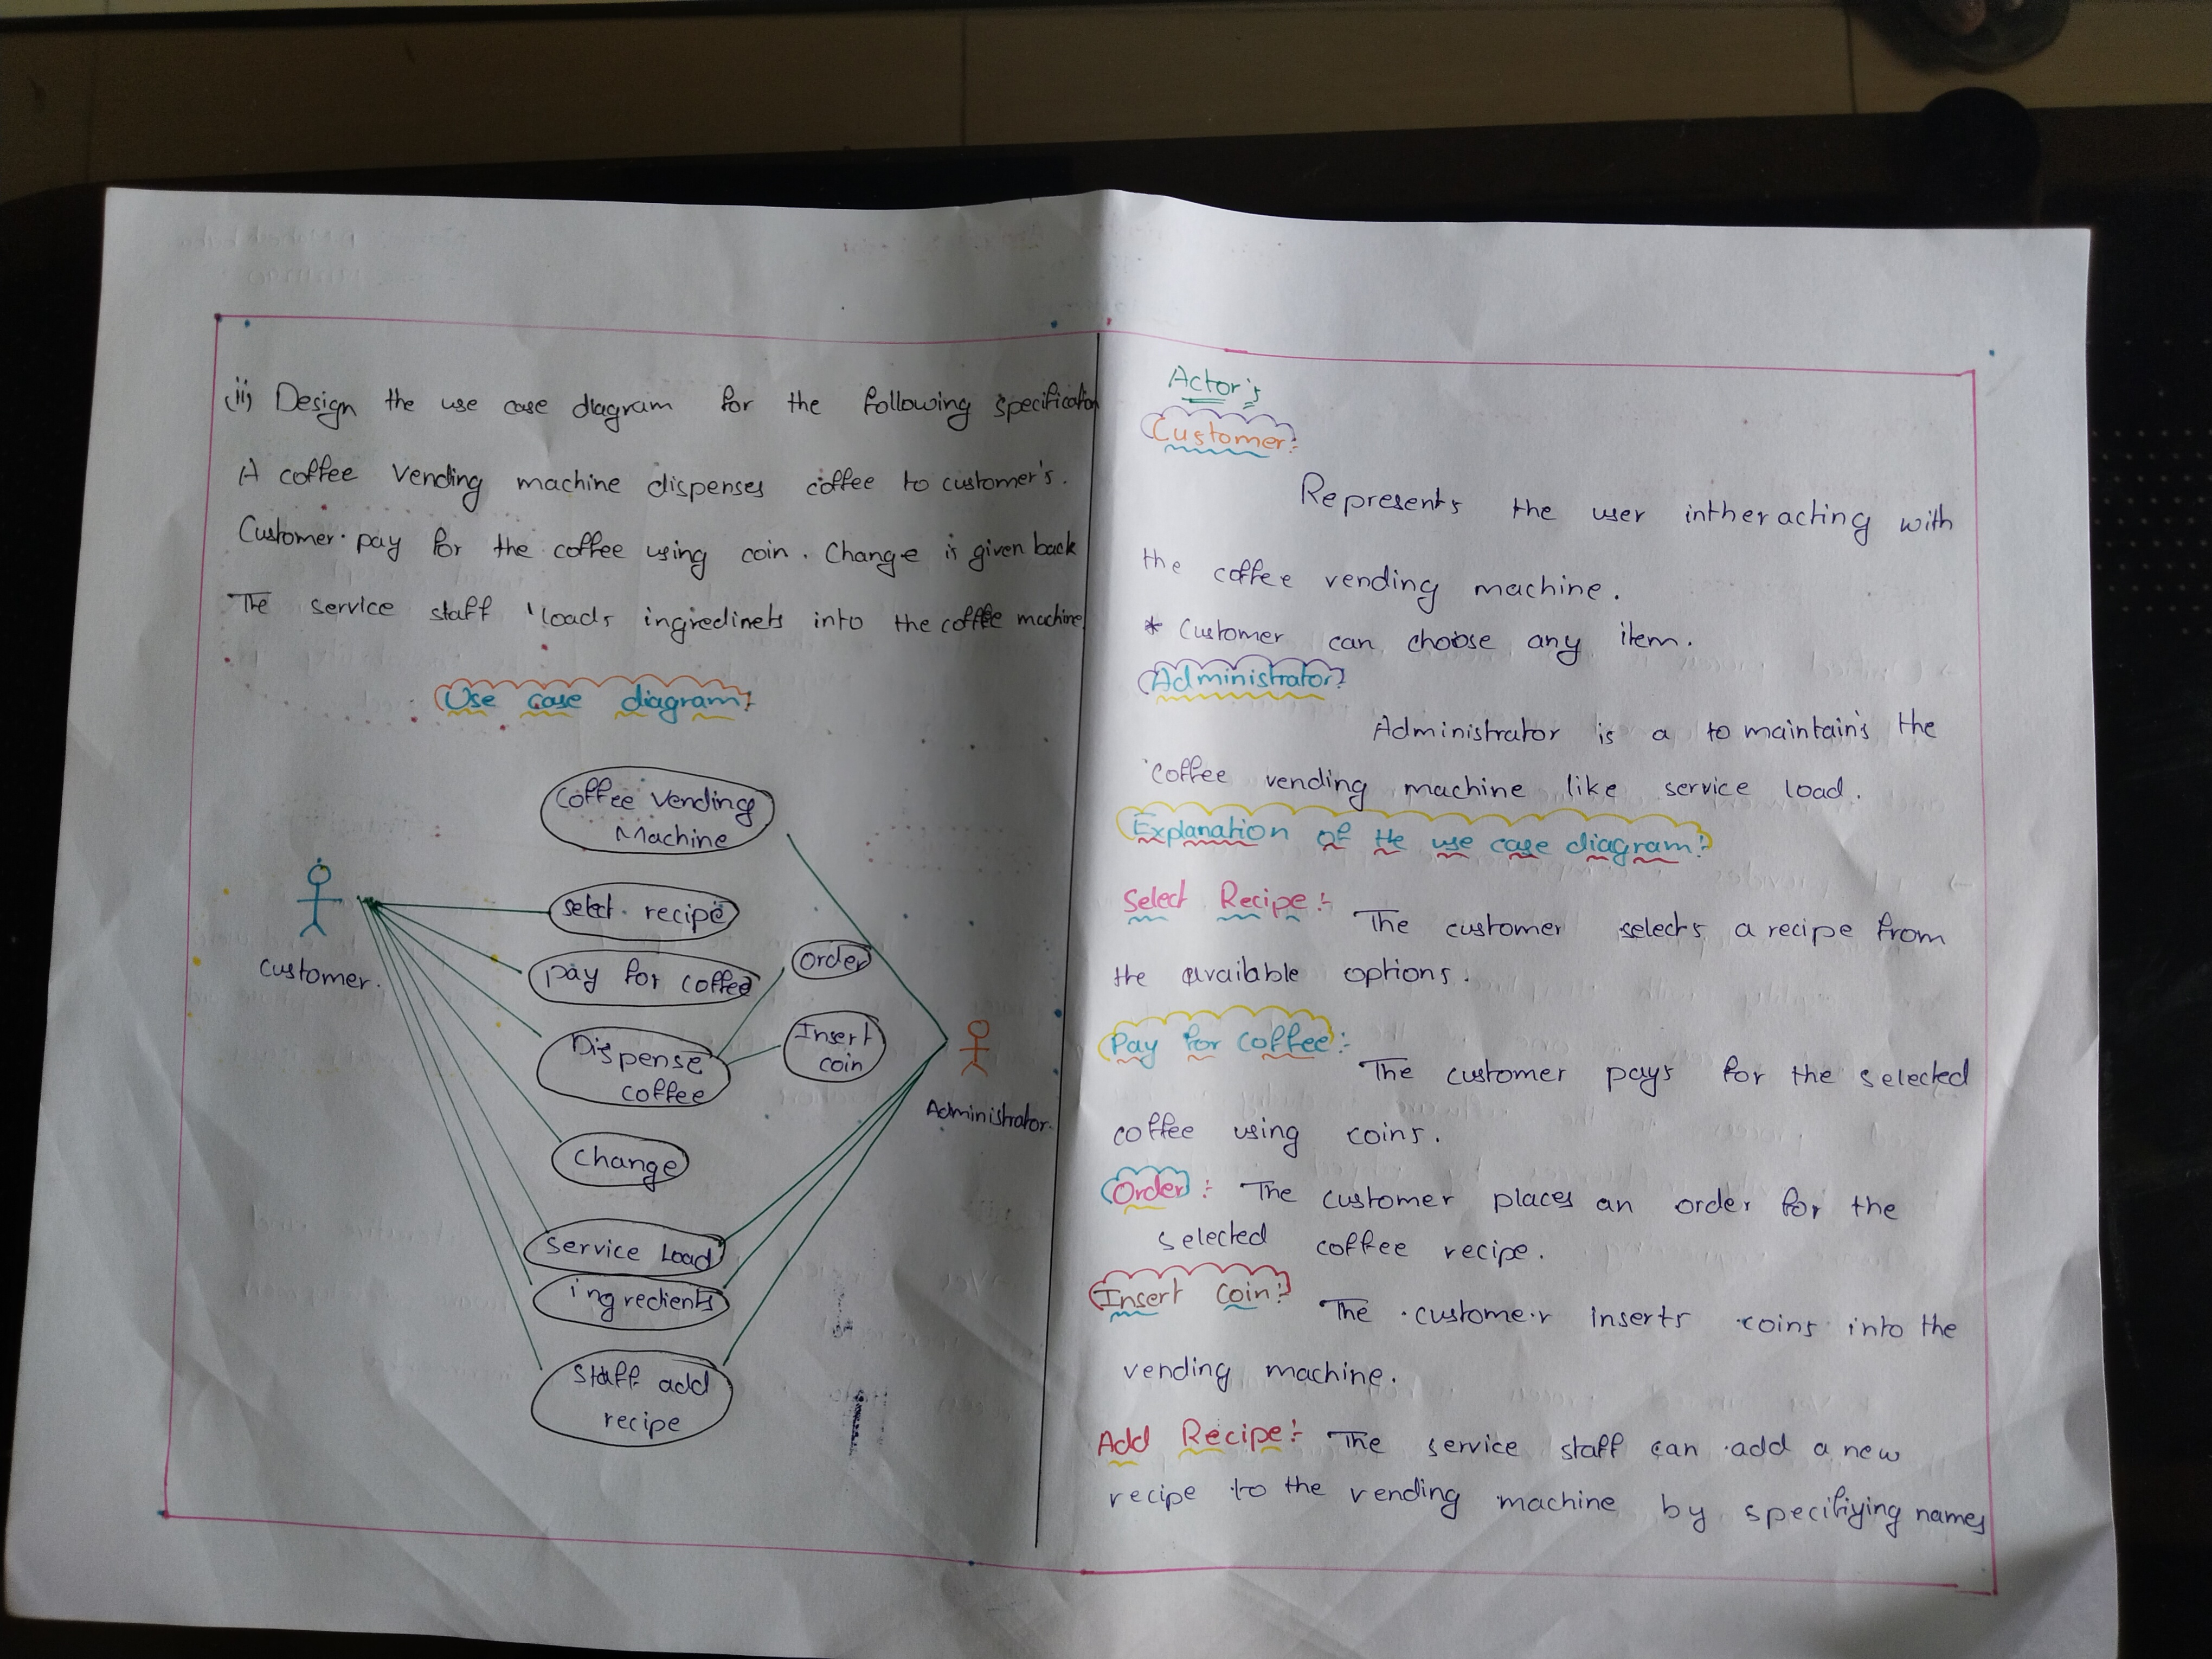 (ii) Design the use case diagram for the following specification
A coffee vending machine dispenses coffee to customer's.
Customer pay for the coffee using coin. Change is given back
The service staff loads ingredinets into the coffee machine
Use case diagram:
Coffee Vending
Machine
select recipe
pay for coffee
Order
Dispense
coffee
Insert
coin
Customer.
Administrator.
change
service Load
ingredients
staff add
recipe
Actor's
Customer:
Represents the user intheracting with
the coffee vending machine.
* Customer can choose any item.
Administrator:
Administrator is a to maintain's the
coffee vending machine like service load.
Explanation of the use case diagram:
Select Recipe :- The customer selects a recipe from
the available options.
Pay for coffee :- The customer pays for the selected
coffee using coins.
Order :- The customer places an order for the
selected coffee recipe.
Insert Coin: The customer inserts coins into the
vending machine.
Add Recipe :- The service staff can add a new
recipe to the vending machine by specifiying names